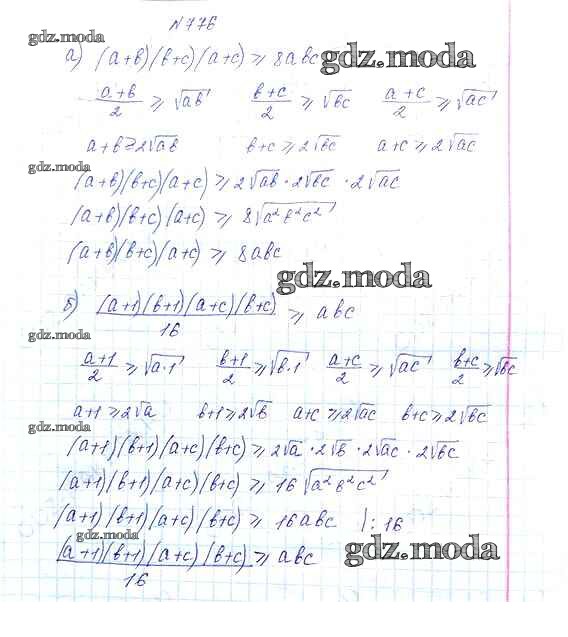 №776
а) (a+b)(b+c)(a+c) ≥ 8abc
gdz.moda
gdz.moda
(a+b)/2 ≥ √ab (b+c)/2 ≥ √bc (a+c)/2 ≥ √ac
a+b ≥ 2√ab b+c ≥ 2√bc a+c ≥ 2√ac
gdz.moda
(a+b)(b+c)(a+c) ≥ 2√ab · 2√bc · 2√ac
(a+b)(b+c)(a+c) ≥ 8√a²b²c²
(a+b)(b+c)(a+c) ≥ 8abc
gdz.moda
б) (a+1)(b+1)(a+c)(b+c)/16 ≥ abc
gdz.moda
(a+1)/2 ≥ √a·1 (b+1)/2 ≥ √b·1 (a+c)/2 ≥ √ac (b+c)/2 ≥ √bc
a+1 ≥ 2√a b+1 ≥ 2√b a+c ≥ 2√ac b+c ≥ 2√bc
gdz.moda
(a+1)(b+1)(a+c)(b+c) ≥ 2√a · 2√b · 2√ac · 2√bc
(a+1)(b+1)(a+c)(b+c) ≥ 16√a²b²c²
(a+1)(b+1)(a+c)(b+c) ≥ 16abc |:16
gdz.moda
gdz.moda
(a+1)(b+1)(a+c)(b+c)/16 ≥ abc